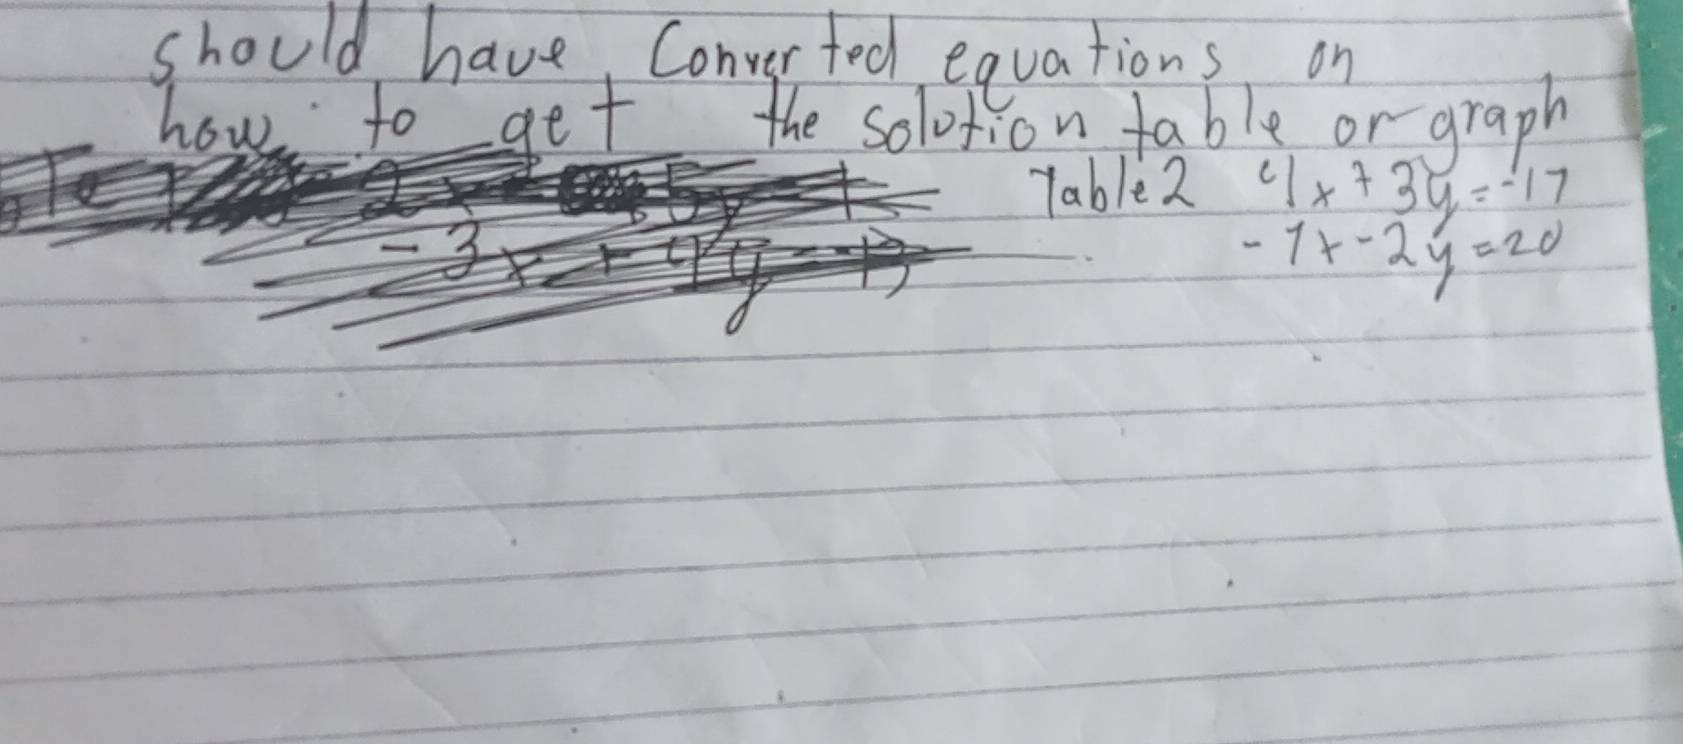 should have Converted equations on
how to get the solution table or graph
Table 2 4x + 3y = -17
-3x + 4y
-7x - 2y = 20